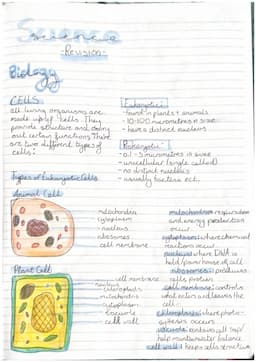 Science
-Revision-
Biology
CELLS
all living organisms are
made up of cells. They
provide structure and carry
out certain functions. There
are two different types of
cells:
Eukaryotic:
- found in plants + animals
- 10-100 micrometres in size
- have a distinct nucleus
Prokaryotic:
- 0.1-5 micrometres in size
- unicellular (single celled)
- no distinct nucleus
- usually bacteria ect.
Types of Eukaryotic Cells
Animal Cell
mitochondria
cytoplasm
nucleus
ribosomes
cell membrane
Plant Cell
cell membrane
nucleus
chloroplasts
mitochondria
cytoplasm
vacuole
cell wall
mitochondria: respiration
and energy production
occur
cytoplasm: where chemical
reactions occur
nucleus: where DNA is
held/powerhouse of cell
ribosomes: produces
cells protein
cell membrane: controls
what enters and leaves the
cell
chloroplasts: where photo-
synthesis occurs
vacuole: contains cell sap/
help maintain water balance
cell wall: keeps cells structure